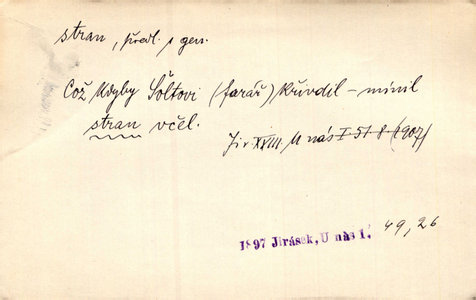 stran, předl. s gen.
Což kdyby Šoltovi (farář) křivdil – mínil
stran včel.
Jir XXIII. U nás I 51 8 (1907)
1897 Jirásek, U nás I. 49, 26